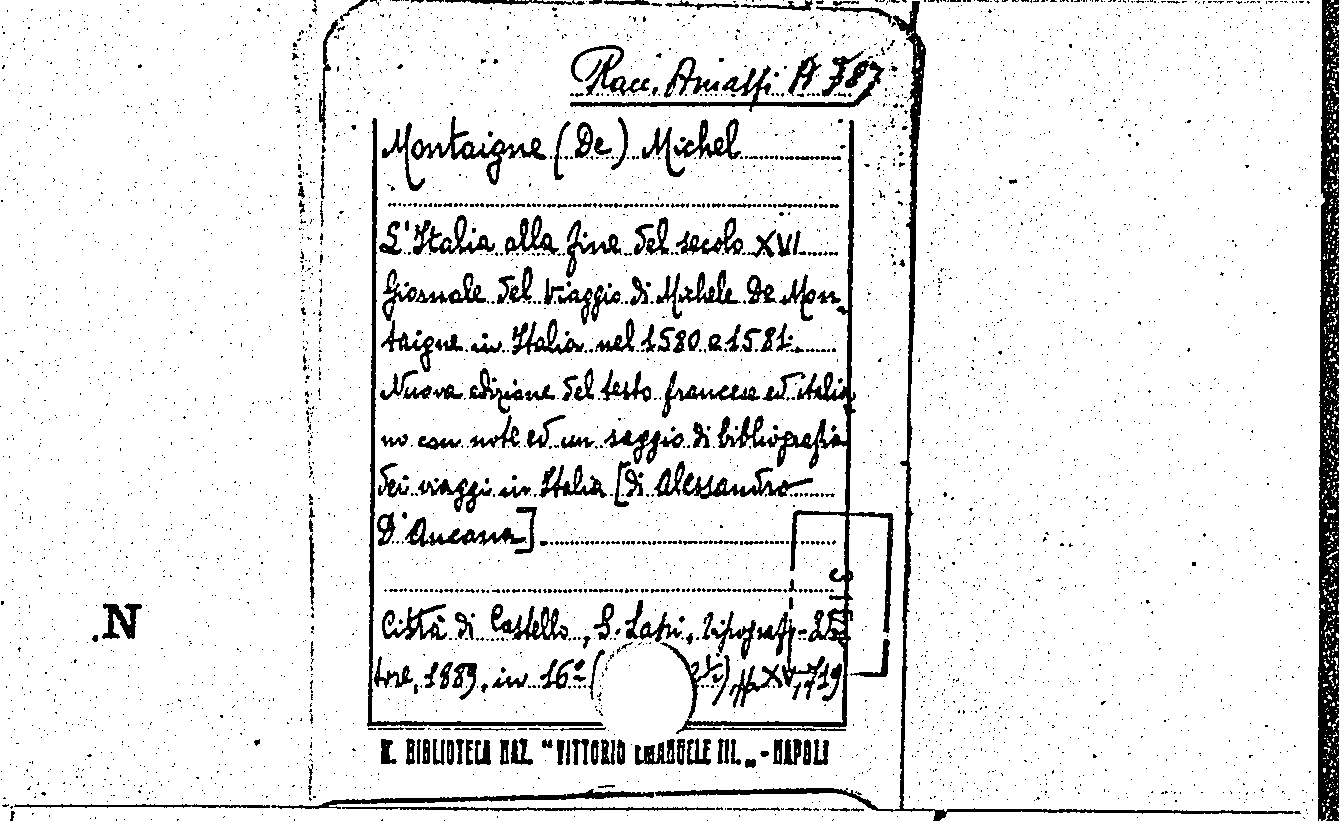 Racc. Amalfi A 787
Montaigne (De) Michel
L'Italia alla fine del secolo XVI
Giornale del viaggio di Michele De Mon-
taigne in Italia nel 1580 e 1581.
Nuova edizione del testo francese ed italia
no con note ed un saggio di bibliografia
dei viaggi in Italia [di Alessandro
D'Ancona].
Città di Castello, S. Lapi, tipograf-
tore, 1889, in 16º ( pp XV, 719
R. BIBLIOTECA NAZ. "VITTORIO EMANUELE III." - NAPOLI
.N